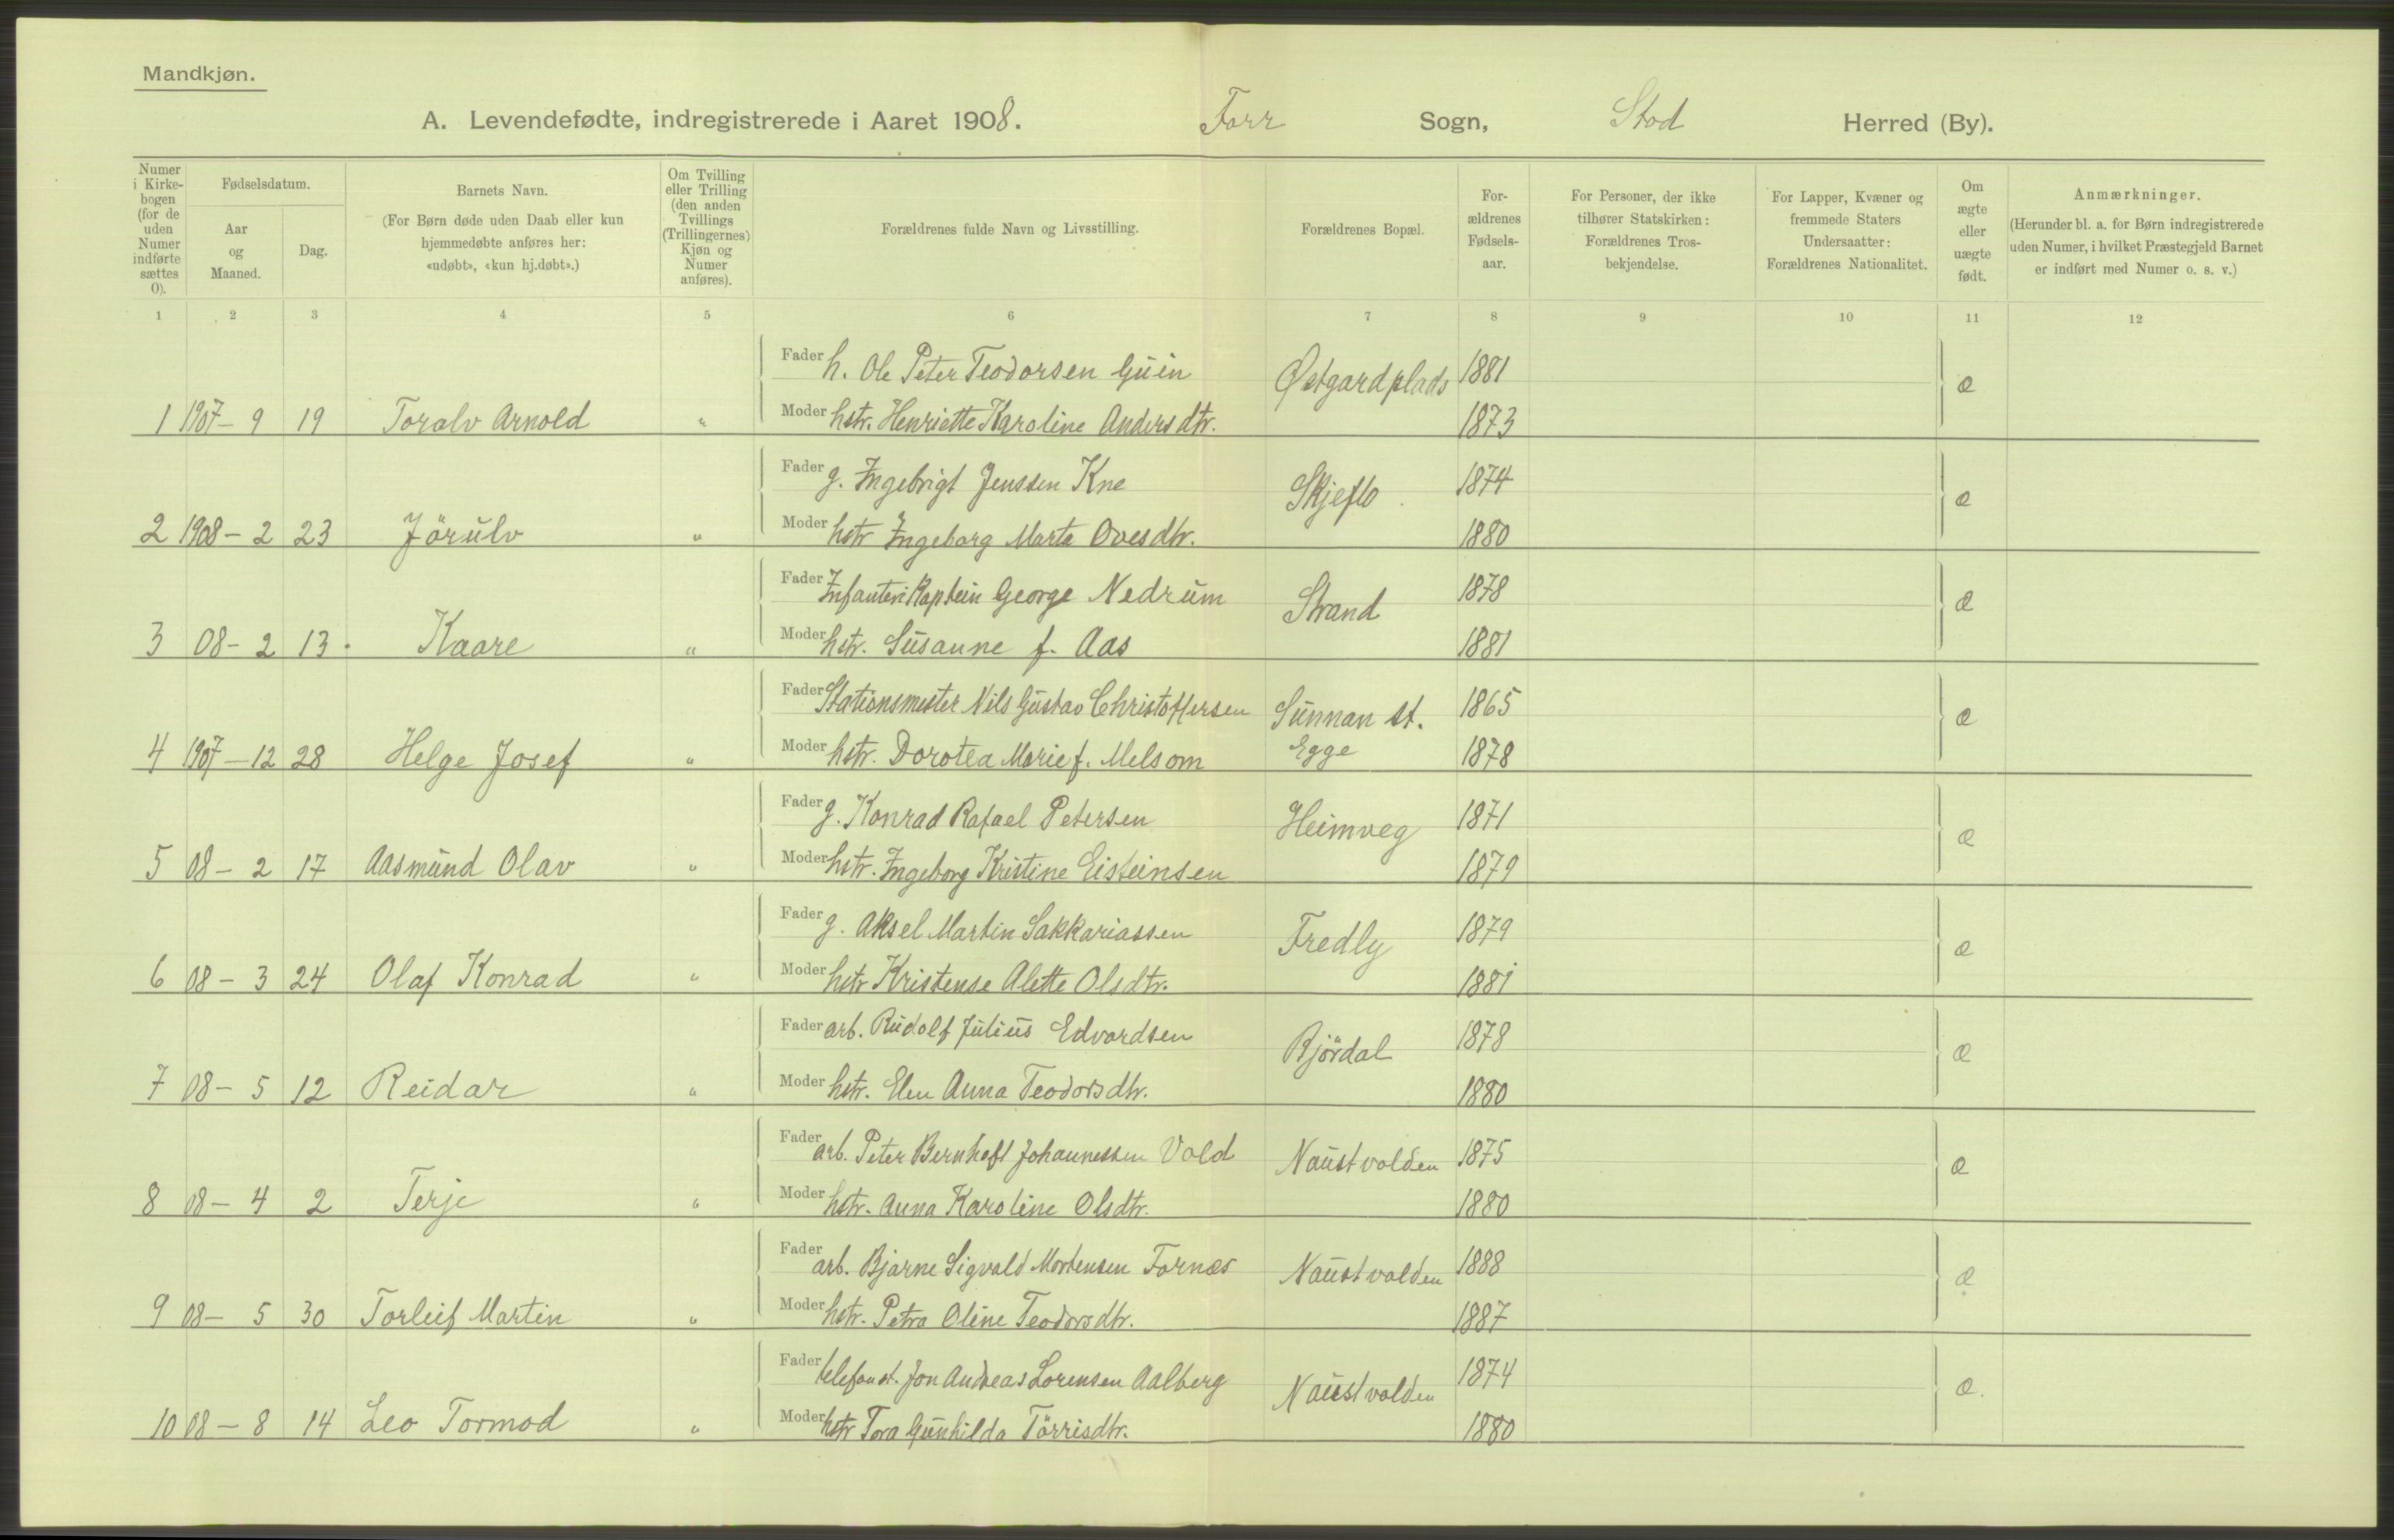 Mandkjøn.
A. Levendefødte, indregistrerede i Aaret 1908. Forr Sogn, Stod Herred (By).
Numer i Kirkebogen (for de uden Numer indførte sættes 0).
Fødselsdatum.
Aar og Maaned.
Dag.
Barnets Navn.
(For Børn døde uden Daab eller kun hjemmedøbte anføres her: «udøbt», «kun hj.døbt».)
Om Tvilling eller Trilling (den anden Tvillings (Trillingernes) Kjøn og Numer anføres).
Forældrenes fulde Navn og Livsstilling.
Forældrenes Bopæl.
Forældrenes Fødselsaar.
For Personer, der ikke tilhører Statskirken: Forældrenes Trosbekjendelse.
For Lapper, Kvæner og fremmede Staters Undersaatter: Forældrenes Nationalitet.
Om ægte eller uægte født.
Anmærkninger.
(Herunder bl. a. for Børn indregistrerede uden Numer, i hvilket Præstegjeld Barnet er indført med Numer o. s. v.)
1 2 3 4 5 6 7 8 9 10 11 12
Fader h. Ole Peter Teodorsen Guin Østgardplads 1881 æ
1 1907- 9 19 Toralv Arnold " Moder hstr. Henriette Karoline Andersdtr. 1873
Fader g. Ingebrigt Jenssen Kne Skjeflo 1874 æ
2 1908- 2 23 Jörulv " Moder hstr Ingeborg Marta Ovesdtr. 1880
Fader Infanterikaptein George Nedrum Strand 1878 æ
3 08- 2 13. Kaare " Moder hstr. Susanne f. Aas 1881
Fader Stationsmester Nils Gustav Christoffersen Sunnan st. 1865 æ
4 1907-12 28 Helge Josef " Moder hstr. Dorotea Marie f. Melsom Egge 1878
Fader g. Konrad Rafael Petersen Heimveg 1871 æ
5 08- 2 17 Aasmund Olav " Moder hstr. Ingeborg Kristine Eisteinsen 1879
Fader g. Aksel Martin Sakkariassen Fredly 1879 æ
6 08- 3 24 Olaf Konrad " Moder hstr Kristense Alette Olsdtr. 1881
Fader arb. Rudolf Julius Edvardsen Björdal 1878 æ
7 08- 5 12 Reidar " Moder hstr. Elen Anna Teodorsdtr. 1880
Fader arb. Peter Bernhoft Johannessen Vold Naustvolden 1875 æ
8 08- 4 2 Terje " Moder hstr. Anna Karoline Olsdtr. 1880
Fader arb. Bjarne Sigvald Mortensen Fornæs Naustvolden 1888 æ
9 08- 5 30 Torleif Martin " Moder hstr. Petra Oline Teodorsdtr. 1887
Fader telefonst. Jon Andreas Lorensen Aalberg Naustvolden 1874 æ.
10 08- 8 14 Leo Tormod " Moder hstr Tora Gunhilda Törrisdtr. 1880